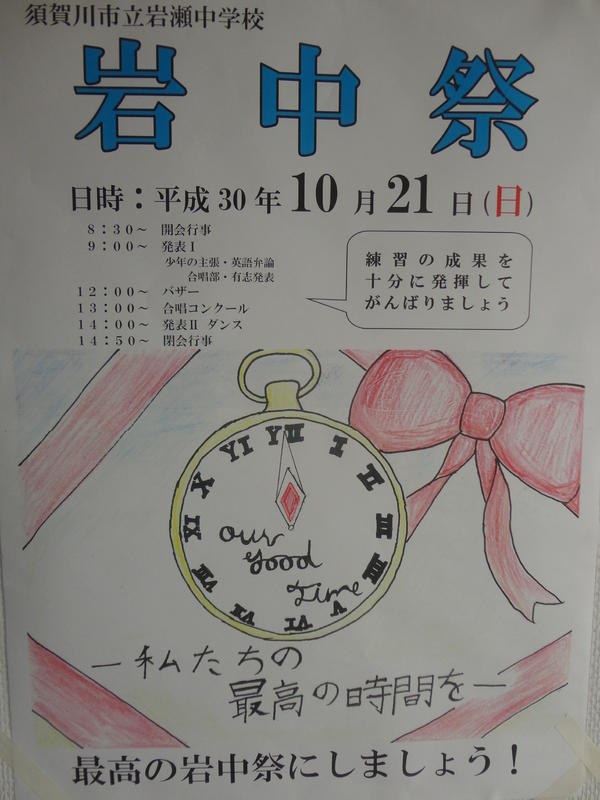 須賀川市立岩瀬中学校
岩中祭
日時：平成30年10月21日(日)
8：30～ 開会行事
9：00～ 発表Ⅰ
少年の主張・英語弁論
合唱部・有志発表
12：00～ バザー
13：00～ 合唱コンクール
14：00～ 発表Ⅱ ダンス
14：50～ 閉会行事
練習の成果を
十分に発揮して
がんばりましょう
our
good
time
―私たちの
最高の時間を―
最高の岩中祭にしましょう！